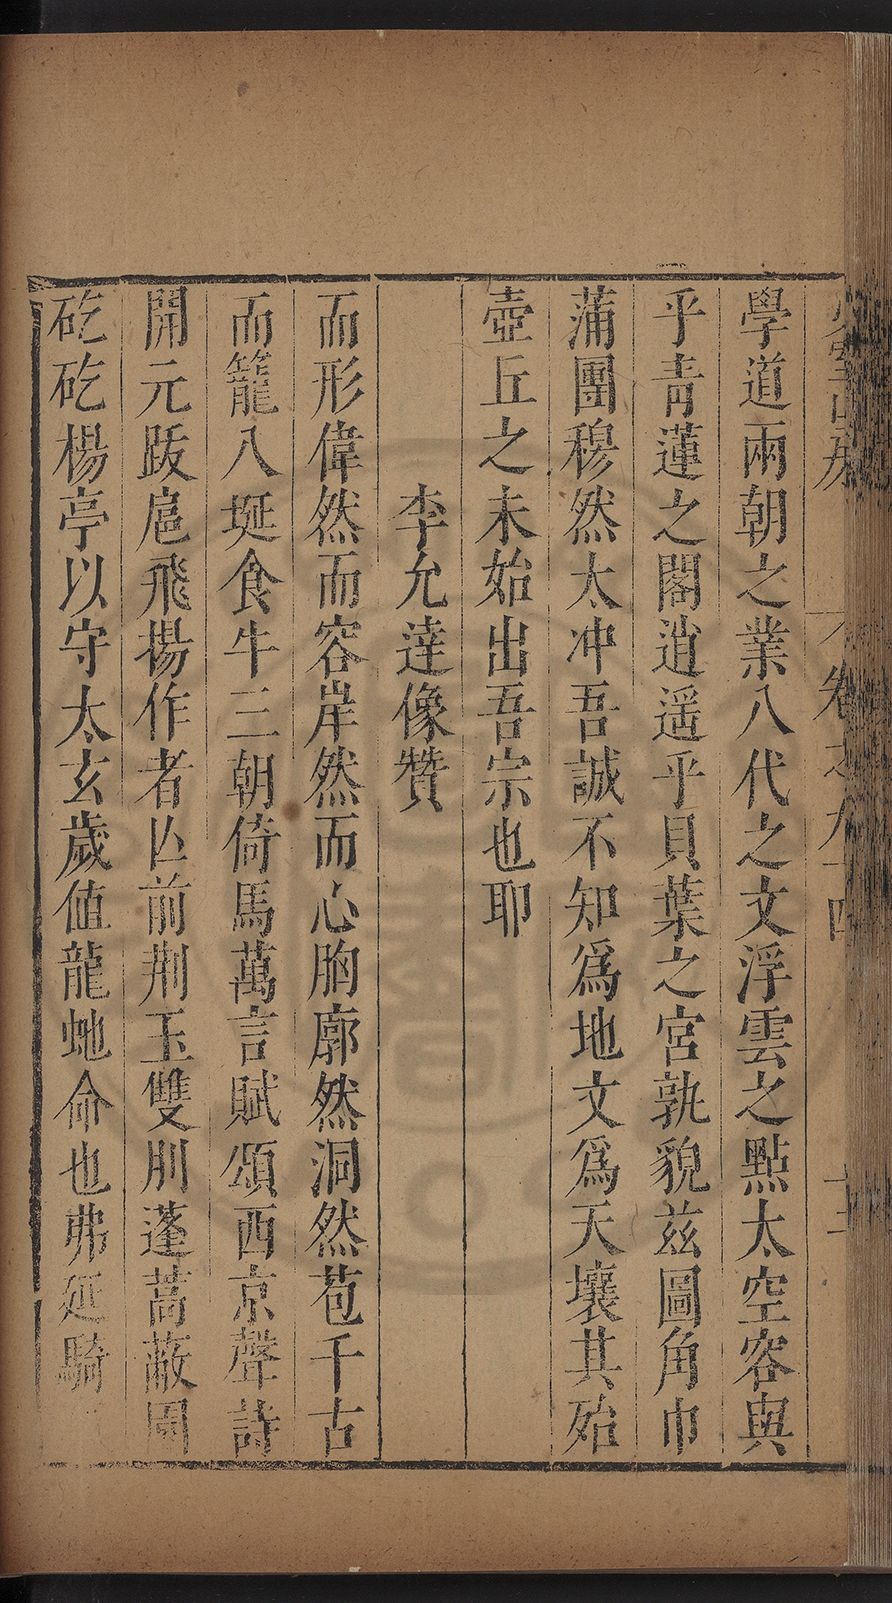 卷之九十四
學道兩朝之業八代之文浮雲之點太空客與
乎靑蓮之閣逍遥乎貝葉之宮孰貌兹圖角巾
蒲團穆然太冲吾誠不知爲地文爲天壤其殆
壺丘之未始出吾宗也耶
李允達像贊
而形偉然而容岸然而心胸廓然洞然苞千古
而籠八埏食牛三朝倚馬萬言賦頌西京聲詩
開元跋扈飛揚作者亾前荆玉雙刖蓬蒿蔽園
矻矻楊亭以守太玄歲值龍虵命也弗延騎